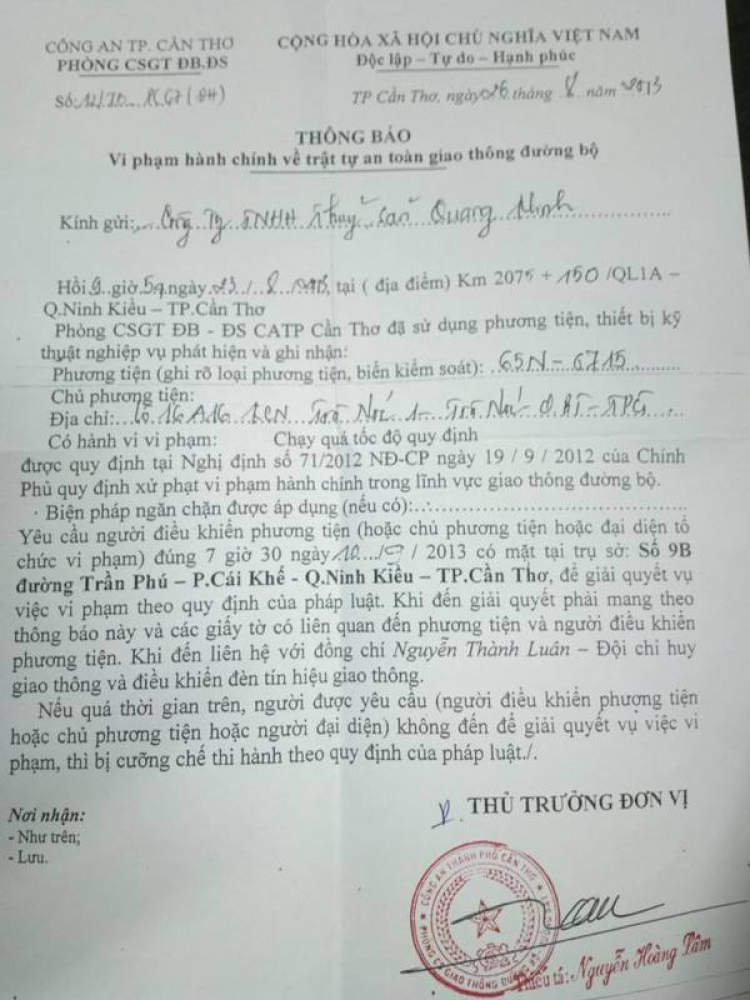 CÔNG AN TP. CẦN THƠ
PHÒNG CSGT ĐB.ĐS
Số:
CỘNG HÒA XÃ HỘI CHỦ NGHĨA VIỆT NAM
Độc lập – Tự do – Hạnh phúc
TP Cần Thơ, ngày 26 tháng 8 năm 2013
THÔNG BÁO
Vi phạm hành chính về trật tự an toàn giao thông đường bộ
Kính gửi: Công Ty TNHH Thuỷ Sản Quang Minh
Hồi 9 giờ 59 ngày 23 / 8 / 2013, tại ( địa điểm) Km 2075 + 150 /QL1A –
Q.Ninh Kiều – TP.Cần Thơ
Phòng CSGT ĐB - ĐS CATP Cần Thơ đã sử dụng phương tiện, thiết bị kỹ
thuật nghiệp vụ phát hiện và ghi nhận:
Phương tiện (ghi rõ loại phương tiện, biển kiểm soát): 65N – 6715
Chủ phương tiện:
Địa chỉ: Lô 16A16 KCN Trà Nóc 1 – Trà Nóc – Q.BT – TPCT
Có hành vi vi phạm: Chạy quá tốc độ quy định
được quy định tại Nghị định số 71/2012 NĐ-CP ngày 19 / 9 / 2012 của Chính
Phủ quy định xử phạt vi phạm hành chính trong lĩnh vực giao thông đường bộ.
Biện pháp ngăn chặn được áp dụng (nếu có):
Yêu cầu người điều khiển phương tiện (hoặc chủ phương tiện hoặc đại diện tổ
chức vi phạm) đúng 7 giờ 30 ngày 10 / 9 / 2013 có mặt tại trụ sở: Số 9B
đường Trần Phú – P.Cái Khế - Q.Ninh Kiều – TP.Cần Thơ, để giải quyết vụ
việc vi phạm theo quy định của pháp luật. Khi đến giải quyết phải mang theo
thông báo này và các giấy tờ có liên quan đến phương tiện và người điều khiển
phương tiện. Khi đến liên hệ với đồng chí Nguyễn Thành Luân – Đội chỉ huy
giao thông và điều khiển đèn tín hiệu giao thông.
Nếu quá thời gian trên, người được yêu cầu (người điều khiển phương tiện
hoặc chủ phương tiện hoặc người đại diện) không đến để giải quyết vụ việc vi
phạm, thì bị cưỡng chế thi hành theo quy định của pháp luật./.
Nơi nhận:
- Như trên;
- Lưu.
THỦ TRƯỞNG ĐƠN VỊ
CÔNG AN THÀNH PHỐ CẦN THƠ
Thiếu tá: Nguyễn Hoàng Tâm